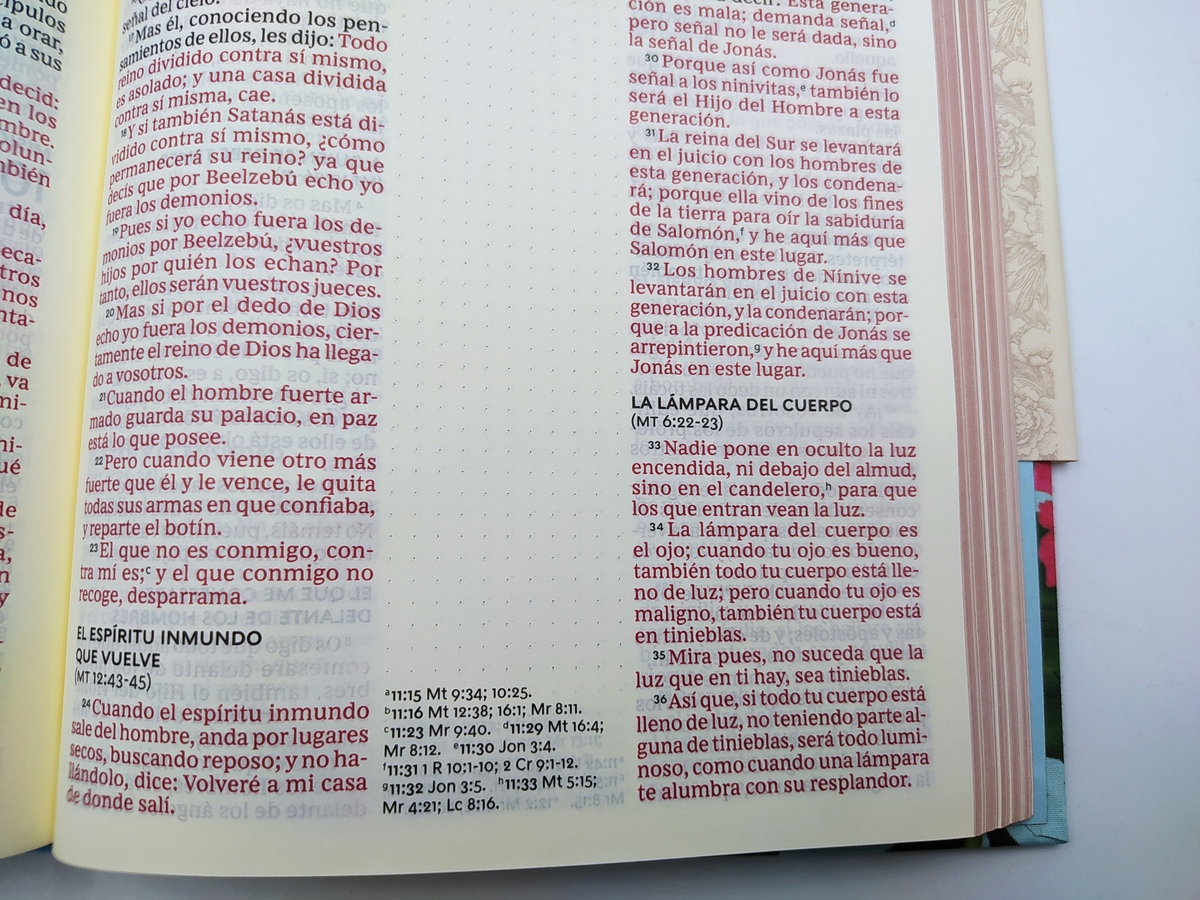 ípulos
a orar,
ó a sus
decid:
en los
mbre.
olun-
mbién
día,
eca-
tros
nos
nta-
de
va
mi-
hi-
ué
de
s-
a,
n
y
señal del cielo.
17 Mas él, conociendo los pen-
samientos de ellos, les dijo: Todo
reino dividido contra sí mismo,
es asolado; y una casa dividida
contra sí misma, cae.
18 Y si también Satanás está di-
vidido contra sí mismo, ¿cómo
permanecerá su reino? ya que
decís que por Beelzebú echo yo
fuera los demonios.
19 Pues si yo echo fuera los de-
monios por Beelzebú, ¿vuestros
hijos por quién los echan? Por
tanto, ellos serán vuestros jueces.
20 Mas si por el dedo de Dios
echo yo fuera los demonios, cier-
tamente el reino de Dios ha llega-
do a vosotros.
21 Cuando el hombre fuerte ar-
mado guarda su palacio, en paz
está lo que posee.
22 Pero cuando viene otro más
fuerte que él y le vence, le quita
todas sus armas en que confiaba,
y reparte el botín.
23 El que no es conmigo, con-
tra mí es;c y el que conmigo no
recoge, desparrama.
EL ESPÍRITU INMUNDO
QUE VUELVE
(MT 12:43-45)
24 Cuando el espíritu inmundo
sale del hombre, anda por lugares
secos, buscando reposo; y no ha-
llándolo, dice: Volveré a mi casa
de donde salí.
a11:15 Mt 9:34; 10:25.
b11:16 Mt 12:38; 16:1; Mr 8:11.
c11:23 Mr 9:40. d11:29 Mt 16:4;
Mr 8:12. e11:30 Jon 3:4.
f11:31 1 R 10:1-10; 2 Cr 9:1-12.
g11:32 Jon 3:5. h11:33 Mt 5:15;
Mr 4:21; Lc 8:16.
decir: Esta genera-
ción es mala; demanda señal,d
pero señal no le será dada, sino
la señal de Jonás.
30 Porque así como Jonás fue
señal a los ninivitas,e también lo
será el Hijo del Hombre a esta
generación.
31 La reina del Sur se levantará
en el juicio con los hombres de
esta generación, y los condena-
rá; porque ella vino de los fines
de la tierra para oír la sabiduría
de Salomón,f y he aquí más que
Salomón en este lugar.
32 Los hombres de Nínive se
levantarán en el juicio con esta
generación, y la condenarán; por-
que a la predicación de Jonás se
arrepintieron,g y he aquí más que
Jonás en este lugar.
LA LÁMPARA DEL CUERPO
(MT 6:22-23)
33 Nadie pone en oculto la luz
encendida, ni debajo del almud,
sino en el candelero,h para que
los que entran vean la luz.
34 La lámpara del cuerpo es
el ojo; cuando tu ojo es bueno,
también todo tu cuerpo está lle-
no de luz; pero cuando tu ojo es
maligno, también tu cuerpo está
en tinieblas.
35 Mira pues, no suceda que la
luz que en ti hay, sea tinieblas.
36 Así que, si todo tu cuerpo está
lleno de luz, no teniendo parte al-
guna de tinieblas, será todo lumi-
noso, como cuando una lámpara
te alumbra con su resplandor.